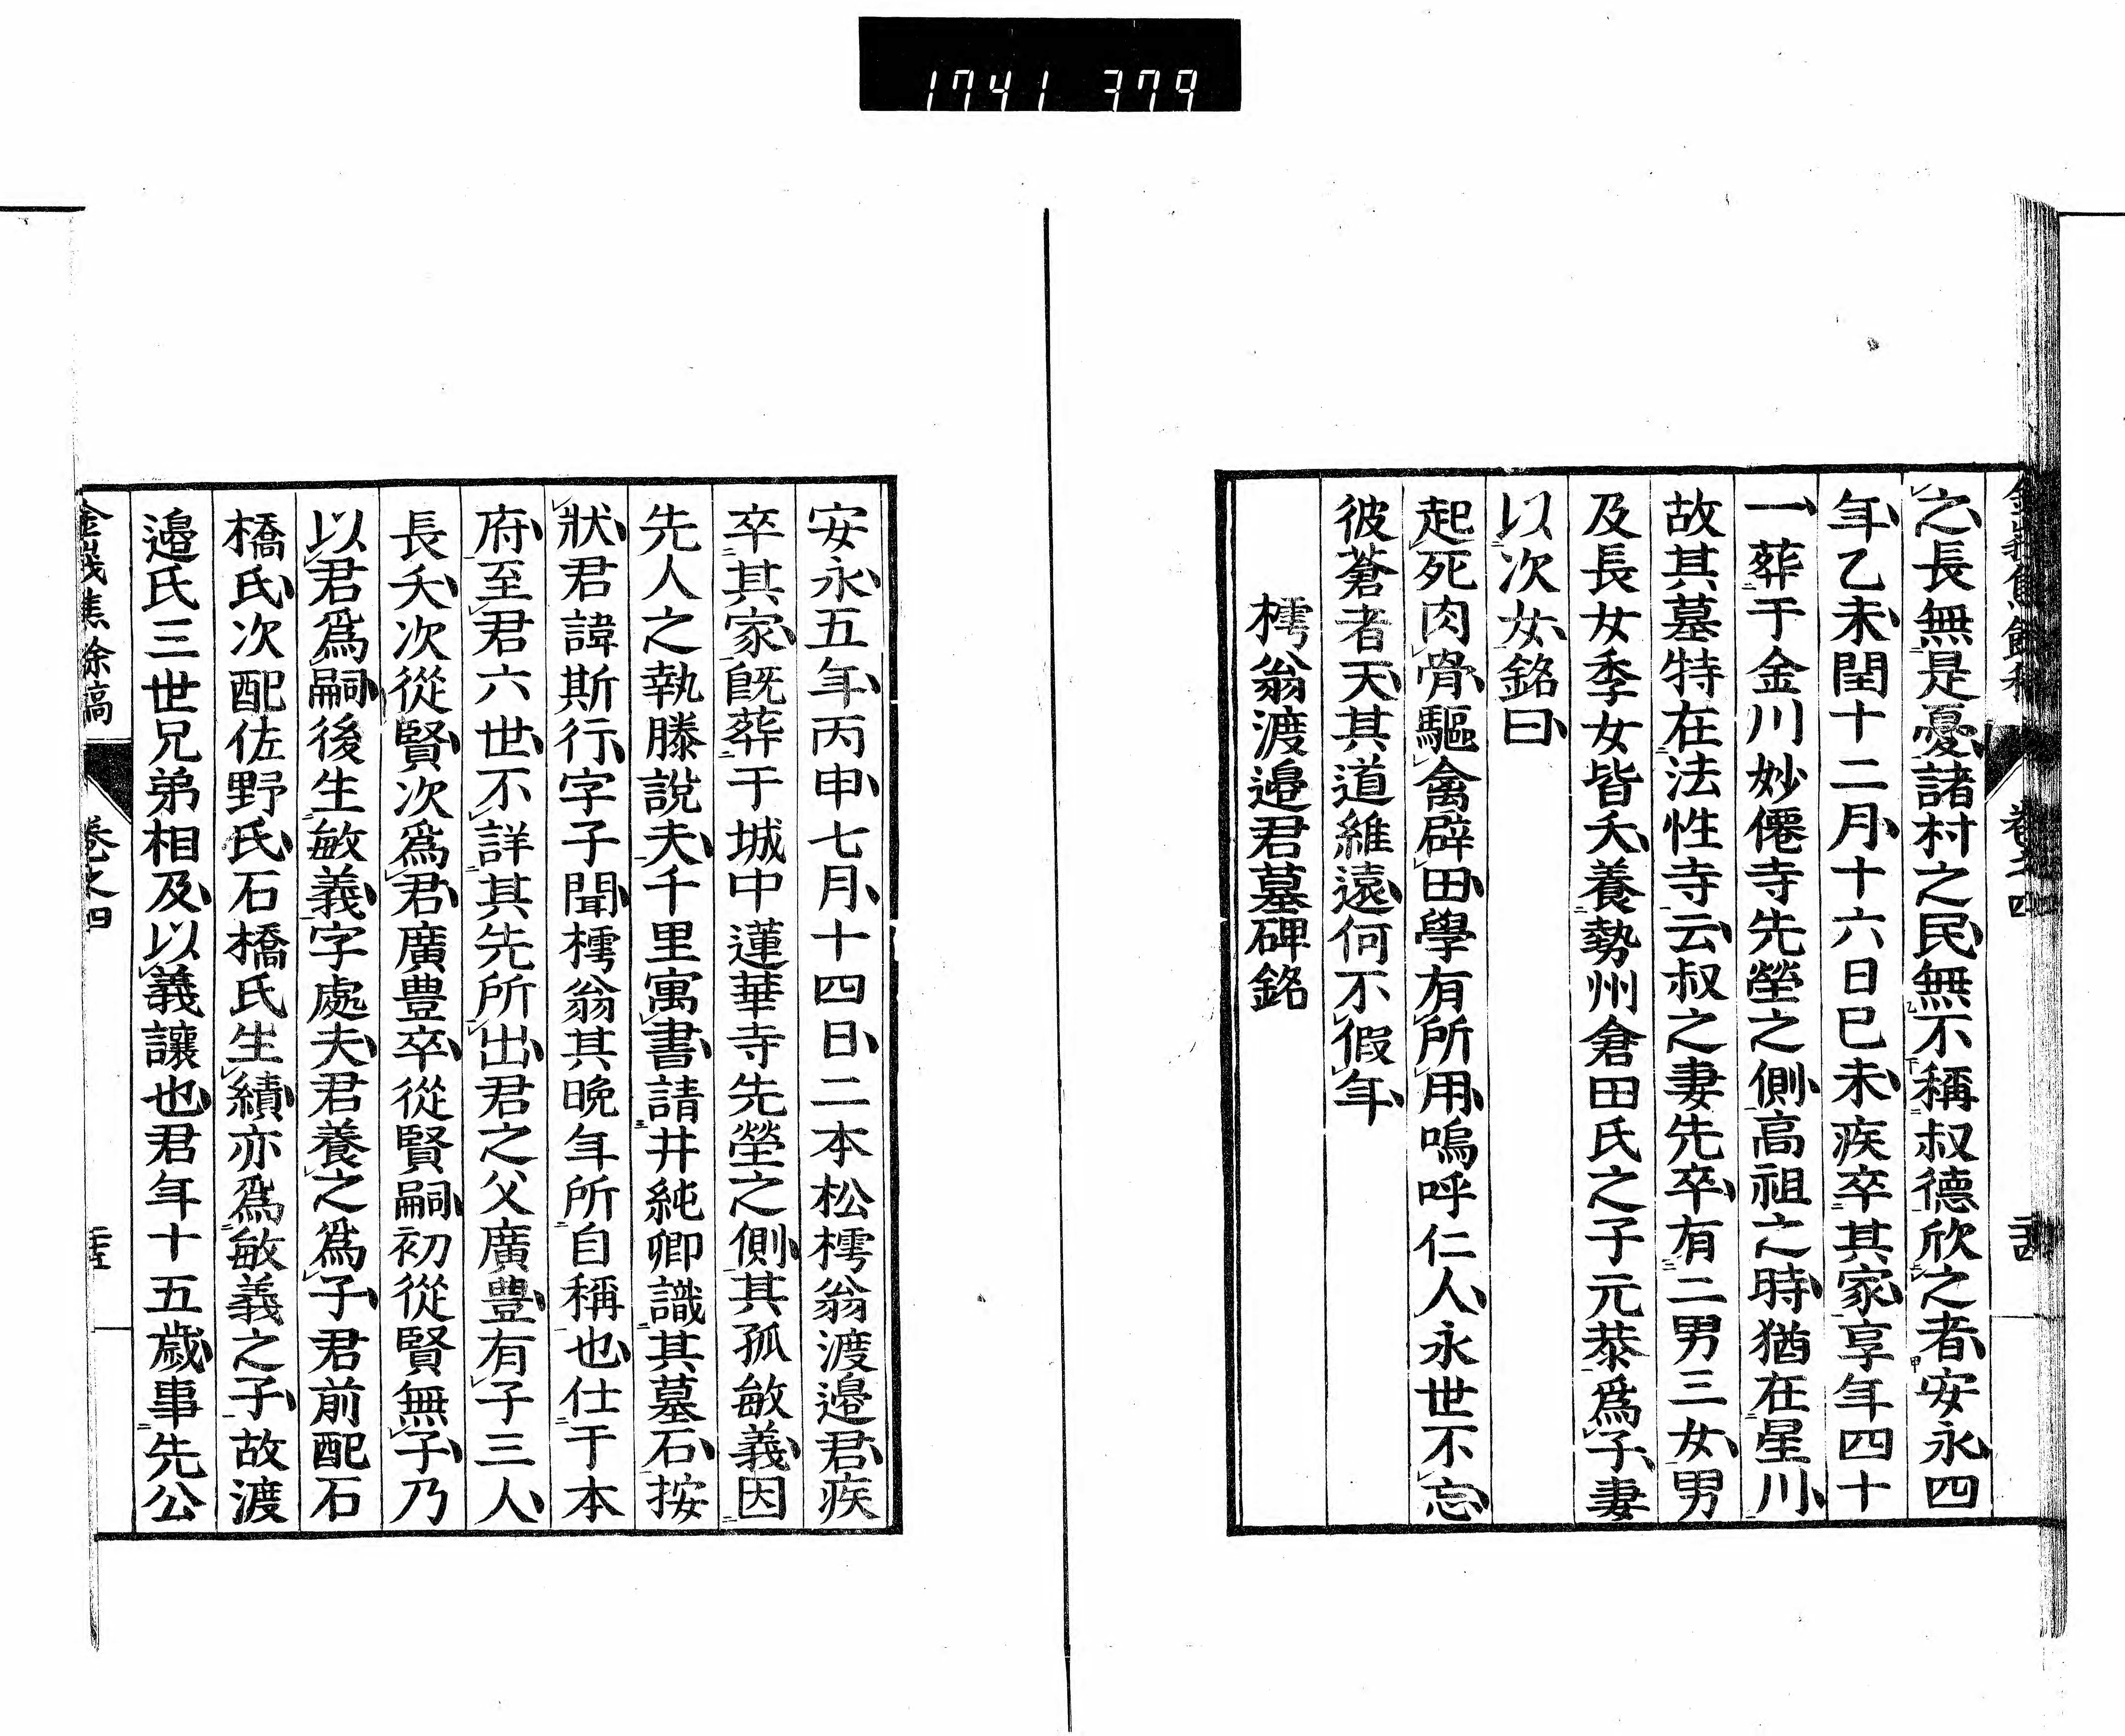 1741 379
之長無是憂諸村之民無不稱叔德欣之者安永四
年乙未閏十二月十六日巳未疾卒其家享年四十
一葬于金川妙僊寺先塋之側高祖之時猶在星川
故其墓特在法性寺云叔之妻先卒有二男三女男
及長女季女皆夭養勢州倉田氏之子元恭爲子妻
以次女銘曰
起死肉骨驅禽辟田學有所用嗚呼仁人永世不忘
彼蒼者天其道維遠何不假年
樗翁渡邉君墓碑銘
安永五年丙申七月十四日二本松樗翁渡邉君疾
卒其家既葬于城中蓮華寺先塋之側其孤敏義因
先人之執滕說夫千里寓書請井純卿識其墓石按
狀君諱斯行字子聞樗翁其晚年所自稱也仕于本
府至君六世不詳其先所出君之父廣豊有子三人
長夭次從賢次爲君廣豊卒從賢嗣初從賢無子乃
以君爲嗣後生敏義字處夫君養之爲子君前配石
橋氏次配佐野氏石橋氏生績亦爲敏義之子故渡
邉氏三世兄弟相及以義讓也君年十五歲事先公
金峩焦餘稿
卷之四